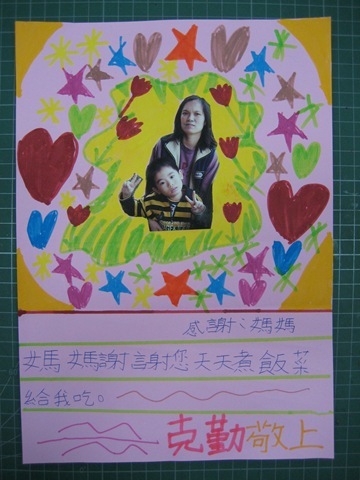 感謝:媽媽
媽媽謝謝您天天煮飯菜
給我吃。
克勤敬上